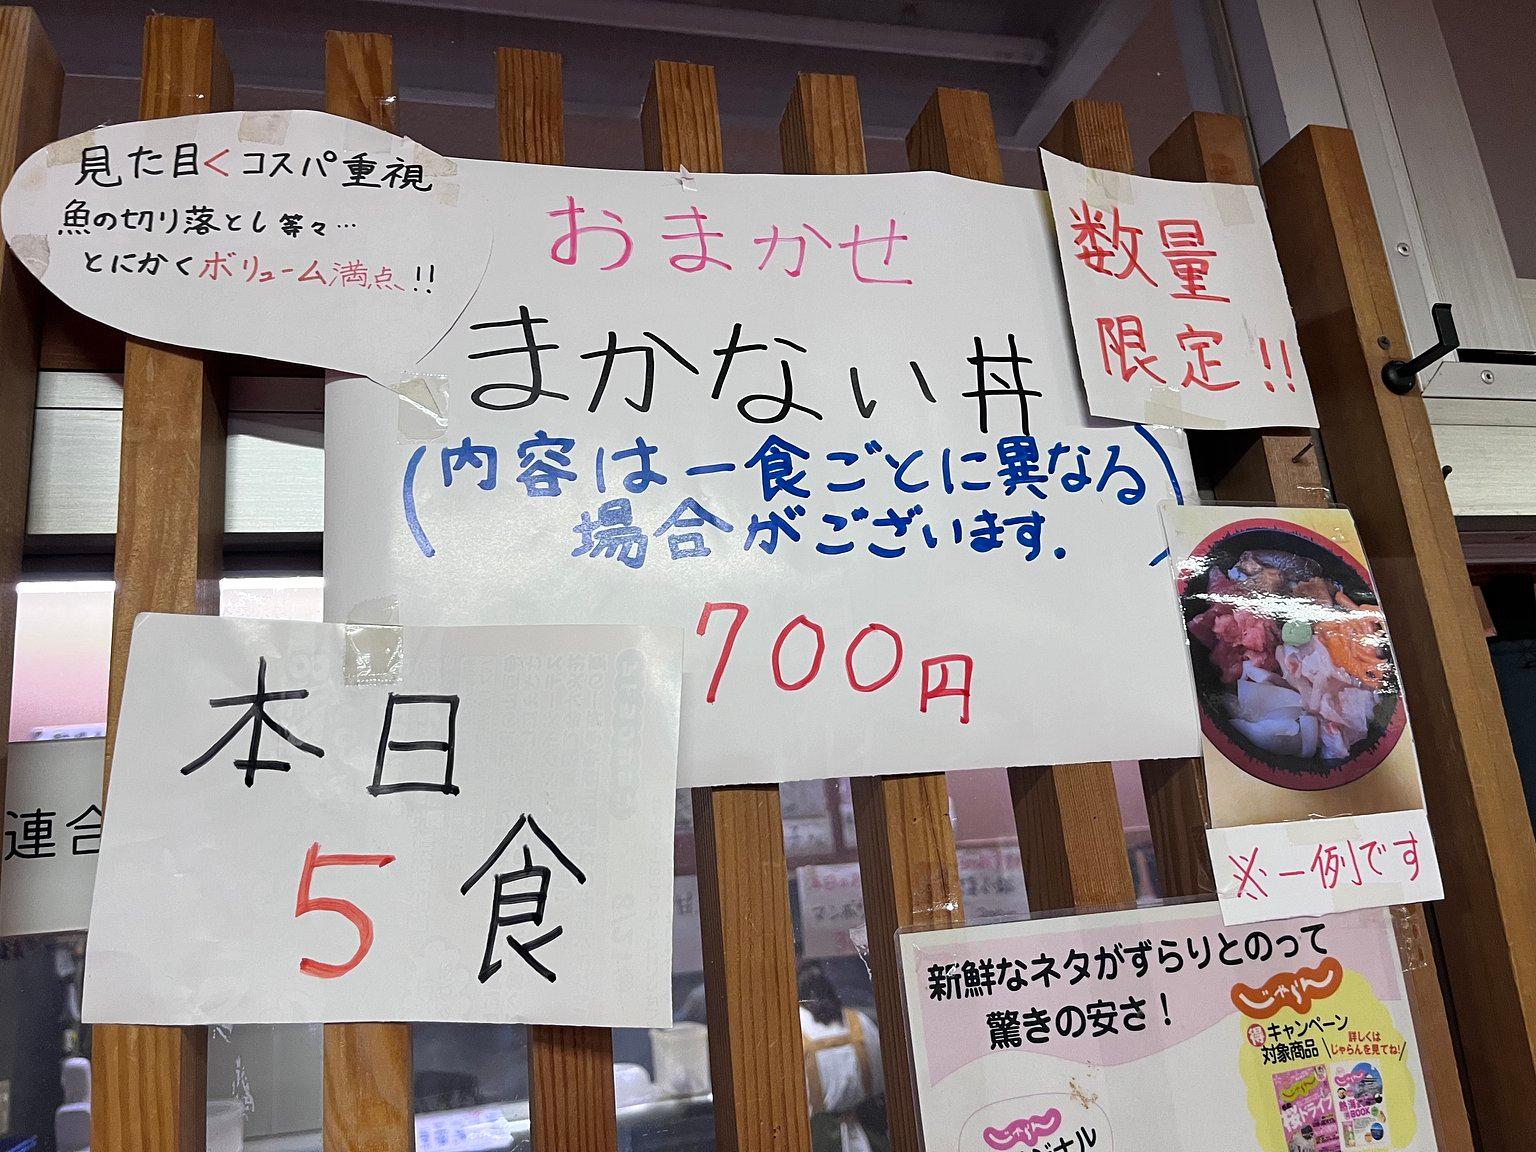 見た目くコスパ重視
魚の切り落とし等々…
とにかくボリューム満点!!
おまかせ
まかない丼
(内容は一食ごとに異なる
場合がございます.)
700円
数量
限定!!
本日
5食
※一例です
連合
新鮮なネタがずらりとのって
驚きの安さ!
じゃらん
得キャンペーン
対象商品
詳しくは
じゃらんを見てね!
じゃらん